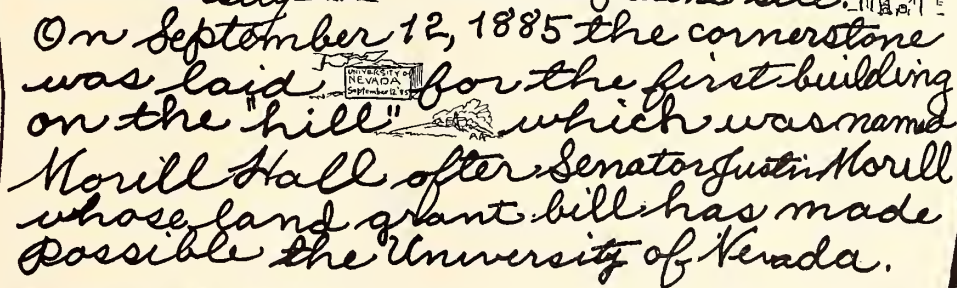 On September 12, 1885 the cornerstone
was laid UNIVERSITY OF NEVADA September 12 '85 for the first building
on the "hill" which was named
Morill Hall after Senator Justin Morill
whose land grant bill has made
possible the University of Nevada.